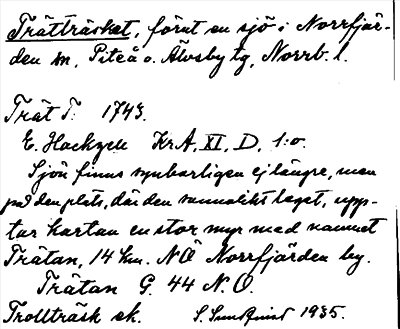 Trätträsket, förut en sjö i Norrfjär-
den sn, Piteå o. Älvsby tg, Norrb. l.
Trät T: 1743.
E. Hackzell Kr.A. XI, D, 1:o.
Sjön finns synbarligen ej längre, men
på den plats, där den sannolikt legat, upp-
tar kartan en stor myr med namnet
Trätan, 14 km. NÖ Norrfjärden by.
Trätan G. 44 N.O.
Trollträsk ek. S. Sundqvist 1935.